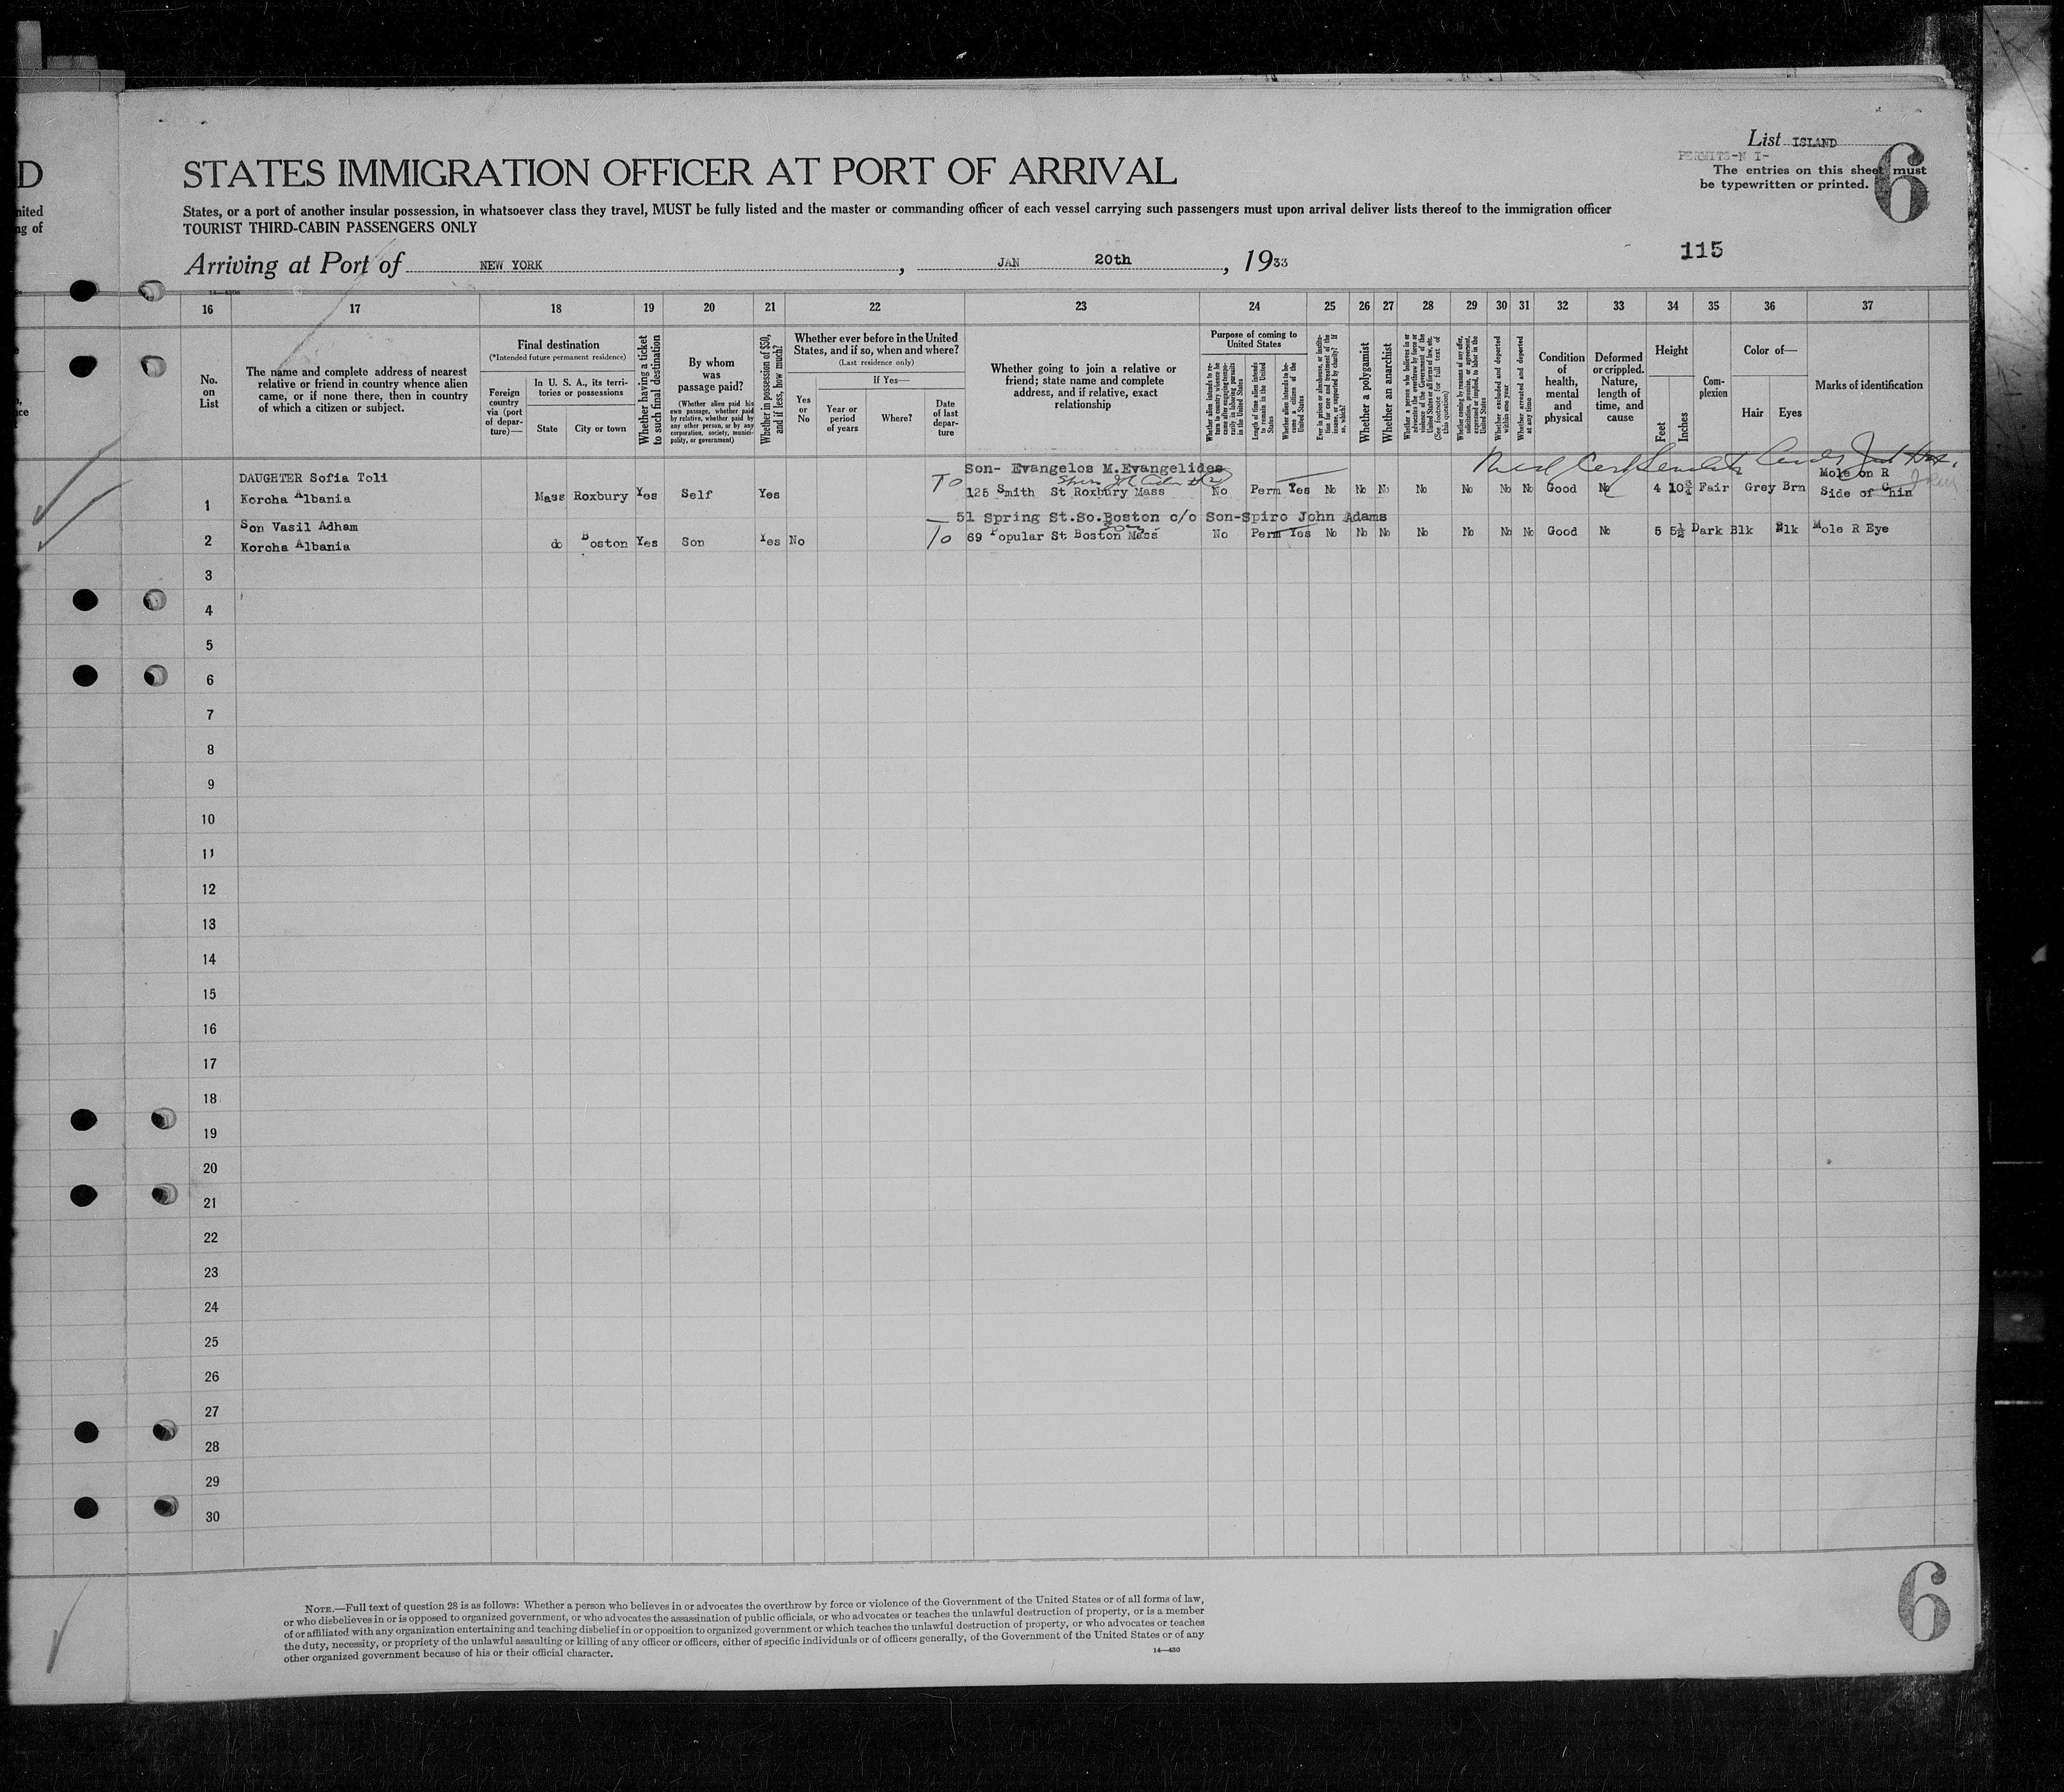 D
nited
ng of
List ISLAND
PERMITS-N I-
6
The entries on this sheet must
be typewritten or printed.
STATES IMMIGRATION OFFICER AT PORT OF ARRIVAL
States, or a port of another insular possession, in whatsoever class they travel, MUST be fully listed and the master or commanding officer of each vessel carrying such passengers must upon arrival deliver lists thereof to the immigration officer
TOURIST THIRD-CABIN PASSENGERS ONLY
Arriving at Port of NEW YORK, JAN 20th, 1933
115
16 17 18 19 20 21 22 23 24 25 26 27 28 29 30 31 32 33 34 35 36 37
No.
on
List
The name and complete address of nearest
relative or friend in country whence alien
came, or if none there, then in country
of which a citizen or subject.
Final destination
(*Intended future permanent residence)
Foreign
country
via (port
of depar-
ture)—
In U. S. A., its terri-
tories or possessions
State
City or town
Whether having a ticket
to such final destination
By whom
was
passage paid?
(Whether alien paid his
own passage, whether paid
by relative, whether paid by
any other person, or by any
corporation, society, munici-
pality, or government)
Whether in possession of $50,
and if less, how much?
Whether ever before in the United
States, and if so, when and where?
(Last residence only)
Yes
or
No
If Yes—
Year or
period
of years
Where?
Date
of last
depar-
ture
Whether going to join a relative or
friend; state name and complete
address, and if relative, exact
relationship
Purpose of coming to
United States
Whether alien intends to re-
turn to country whence he
came after engaging tempo-
rarily in laboring pursuits
in the United States
Length of time alien intends
to remain in the United
States
Whether alien intends to be-
come a citizen of the
United States
Ever in prison or almshouse, or institu-
tion for care and treatment of the
insane, or supported by charity? If
so, which?
Whether a polygamist
Whether an anarchist
Whether a person who believes in or
advocates the overthrow by force or
violence of the Government of the
United States or all forms of law, etc.
(See footnote for full text of
this question)
Whether coming by reasons of any offer,
solicitation, promise, or agreement,
expressed or implied, to labor in the
United States
Whether excluded and deported
within one year
Whether arrested and deported
at any time
Condition
of
health,
mental
and
physical
Deformed
or crippled.
Nature,
length of
time, and
cause
Height
Feet
Inches
Com-
plexion
Color of—
Hair
Eyes
Marks of identification
DAUGHTER Sofia Toli
Son- Evangelos M.Evangelides
Mole on R
1 Korcha Albania Mass Roxbury Yes Self Yes To 125 Smith St Roxbury Mass No Perm Yes No No No No No No No Good No 4 10¾ Fair Grey Brn Side of Chin
Son Vasil Adham
51 Spring St.So.Boston c/o Son-Spiro John Adams
2 Korcha Albania do Boston Yes Son Yes No To 69 Popular St Boston Mass No Perm Yes No No No No No No No Good No 5 5½ Dark Blk Blk Mole R Eye
3
4
5
6
7
8
9
10
11
12
13
14
15
16
17
18
19
20
21
22
23
24
25
26
27
28
29
30
NOTE.—Full text of question 28 is as follows: Whether a person who believes in or advocates the overthrow by force or violence of the Government of the United States or of all forms of law,
or who disbelieves in or is opposed to organized government, or who advocates the assassination of public officials, or who advocates or teaches the unlawful destruction of property, or is a member
of or affiliated with any organization entertaining and teaching disbelief in or opposition to organized government or which teaches the unlawful destruction of property, or who advocates or teaches
the duty, necessity, or propriety of the unlawful assaulting or killing of any officer or officers, either of specific individuals or of officers generally, of the Government of the United States or of any
other organized government because of his or their official character.
14—430
6